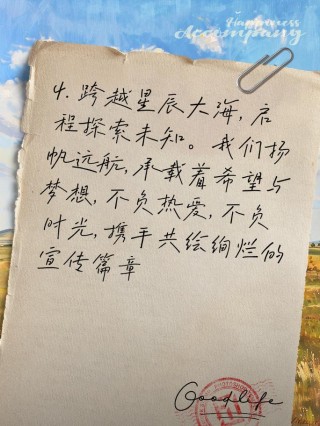 Happiness
Accompany
4. 跨越星辰大海,启
程探索未知。我们扬
帆远航,承载着希望与
梦想,不负热爱,不负
时光,携手共绘绚烂的
宣传篇章
Goodlife